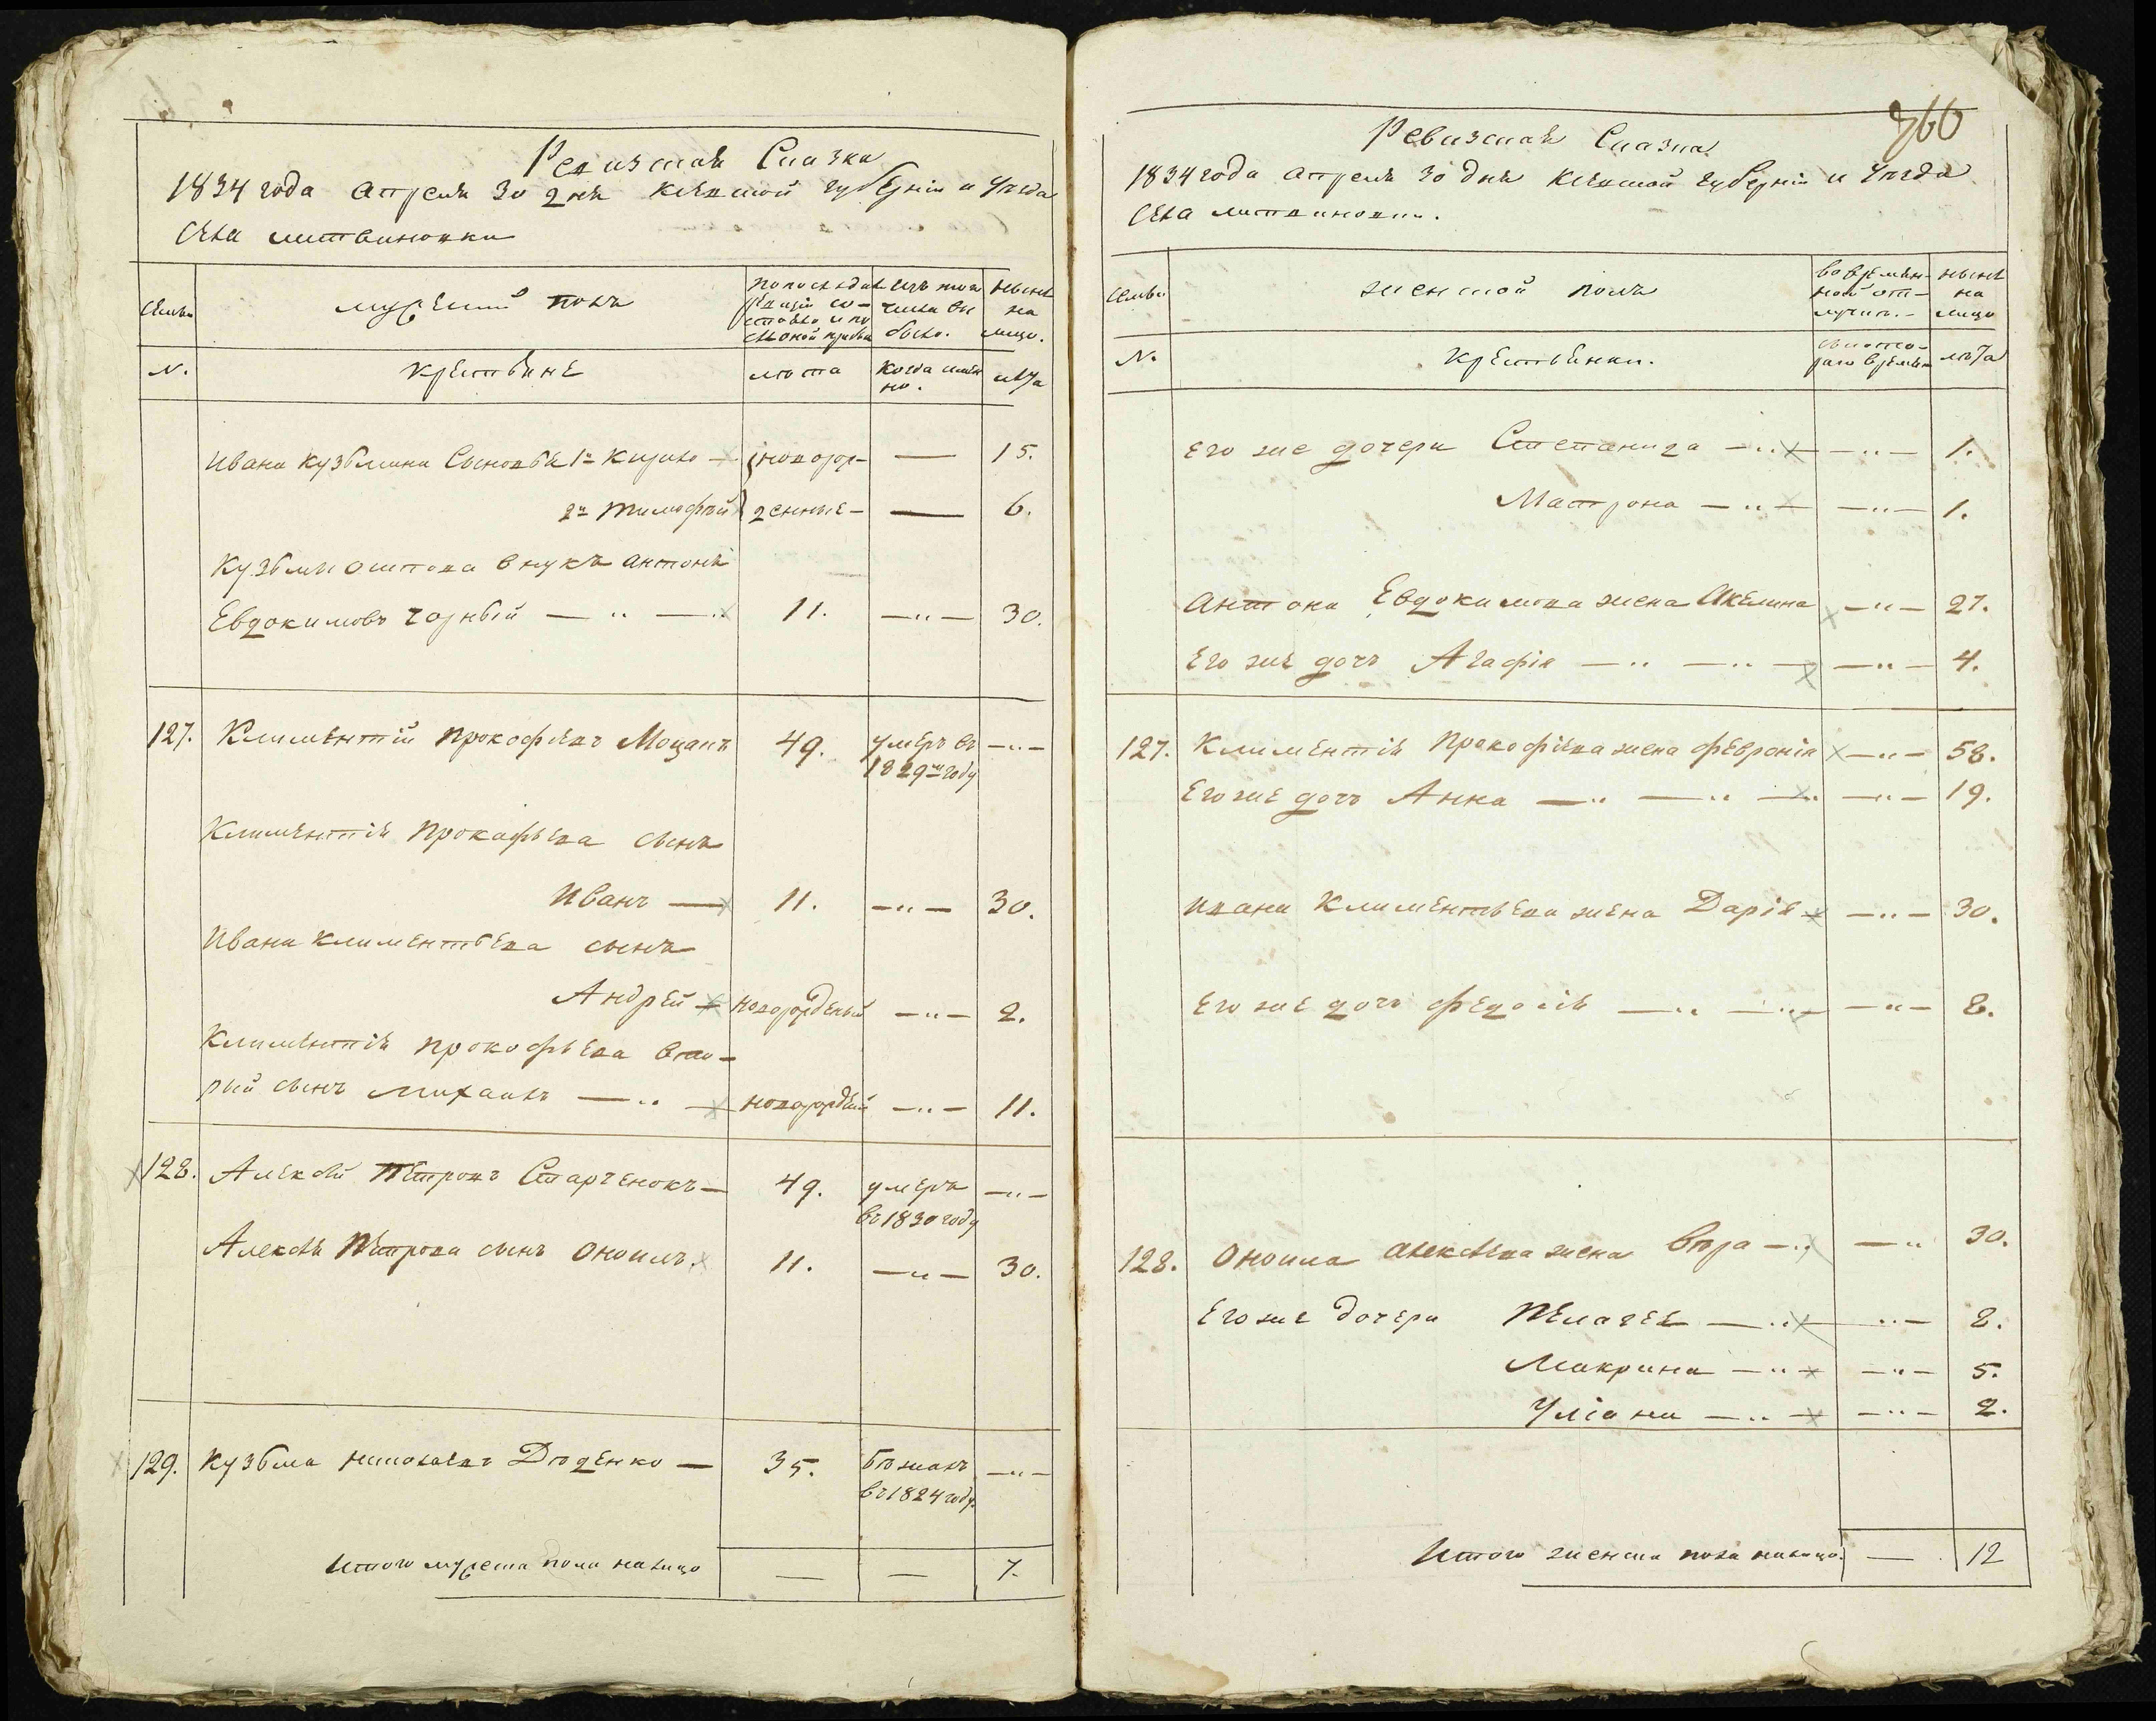 Ревизская Сказка
1834 года апреля 30 дня Кіевской губерніи и Уезда
села Литвиновки
Семьи
мужеский полъ
По последней ревизіи состояло и после оной прибыло
Изъ того числа выбыло.
Ныне на лицо.
№.
Крестьяне
лета
Когда именно.
лета
Ивана Кузьмина Сыновья 1й Кирило — новорож- — 15.
2й Тимофей денные — — 6.
Кузьмы внукъ Антонъ
Евдокимовъ Чорный — " — " 11. — " — 30.
127. Климентій Прокофьевъ Моцакъ 49. умеръ въ — " —
1829м году
Климентія Прокофьева сынъ
Иванъ — 11. — " — 30.
Ивана Климентьева сынъ
Андрей — новорожденый — " — 2.
Климентія Прокофьева вто-
рый сынъ Михаилъ — " — новорожденый — " — 11.
128. Алексей Петровъ Старченокъ — 49. умеръ — " —
въ 1830 году
Алексея Петрова сынъ Оноилъ. 11. — " — 30.
129. Кузьма Николаевъ Деденко — 35. Бежалъ — " —
въ 1824 году.
Итого мужеска пола налицо — — 7.
360
Ревизская Сказка
1834 года апреля 30 дня Кіевской губерніи и Уезда
села Литвиновки.
Семьи
женской полъ
во времен-
ной от-
лучке.
Ныне
на
лицо
№.
Крестьянки.
съ кото-
раго времени
лета
Его же дочери Степанида — " — — " — 1.
Матрона — " — — " — 1.
Антона Евдокимова жена Акелина — " — 27.
Его же дочь Агафія — " — " — — " — 4.
127. Климентія Прокофіева жена Февронія — " — 58.
Его же дочь Анна — " — " — " — " — 19.
Ивана Климентьева жена Дарія — — " — 30.
Его же дочь Федосія — " — " — — " — 8.
128. Оноила Алексеева жена Вера — " — " 30.
Его же дочери Пелагея — " — " — 8.
Макрина — " — — " — 5.
Уліана — " — — " — 2.
Итого женска пола налицо. — 12